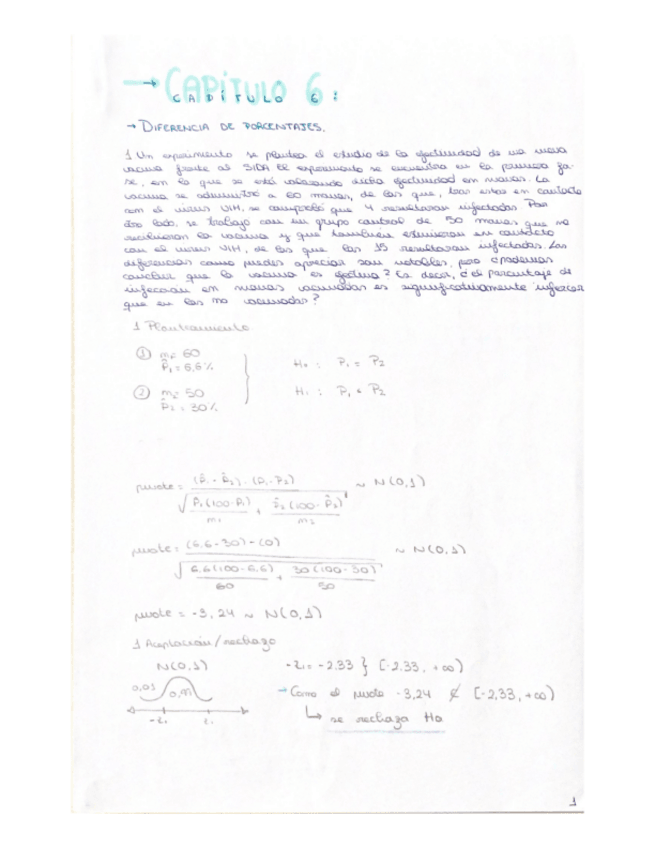 → CAPÍTULO 6:
CAPÍTULO 6:
→ DIFERENCIA DE PORCENTAJES.
1 Un experimento se plantea el estudio de la efectividad de una nueva
vacuna frente al SIDA El experimento se encuentra en la primera fa-
se, en la que se está valorando dicha efectividad en monas. La
vacuna se administró a 60 monas, de las que, tras estar en contacto
con el virus VIH, se comprobó que 4 resultaron infectadas Por
otro lado, se trabajó con un grupo control de 50 monas que no
recibieron la vacuna y que también estuvieron en contacto
con el virus VIH, de las que las 15 resultaron infectadas. Las
diferencias como puedes apreciar son notables, pero ¿podemos
concluir que la vacuna es efectiva? Es decir, ¿el porcentaje de
infección en monas vacunadas es significativamente inferior
que en las no vacunadas?
1 Planteamiento
① n₁= 60
P̂₁ = 6,6%
H₀ : P₁ = P₂
② n₂= 50
P̂₂ = 30%
H₁ : P₁ < P₂
pivote = (P̂₁ - P̂₂) - (P₁-P₂) / √( P̂₁(100-P̂₁) / n₁ + P̂₂(100-P̂₂) / n₂ ) ~ N(0,1)
pivote = (6,6-30)-(0) / √( 6,6(100-6,6) / 60 + 30(100-30) / 50 ) ~ N(0,1)
pivote = -3,24 ~ N(0,1)
1 Aceptación/rechazo
N(0,1)
-z₁= -2,33 } [-2,33, +∞)
0,01 0,99
-z₁ z₁
→ Como el pivote -3,24 ∉ [-2,33, +∞)
↳ se rechaza H₀
1